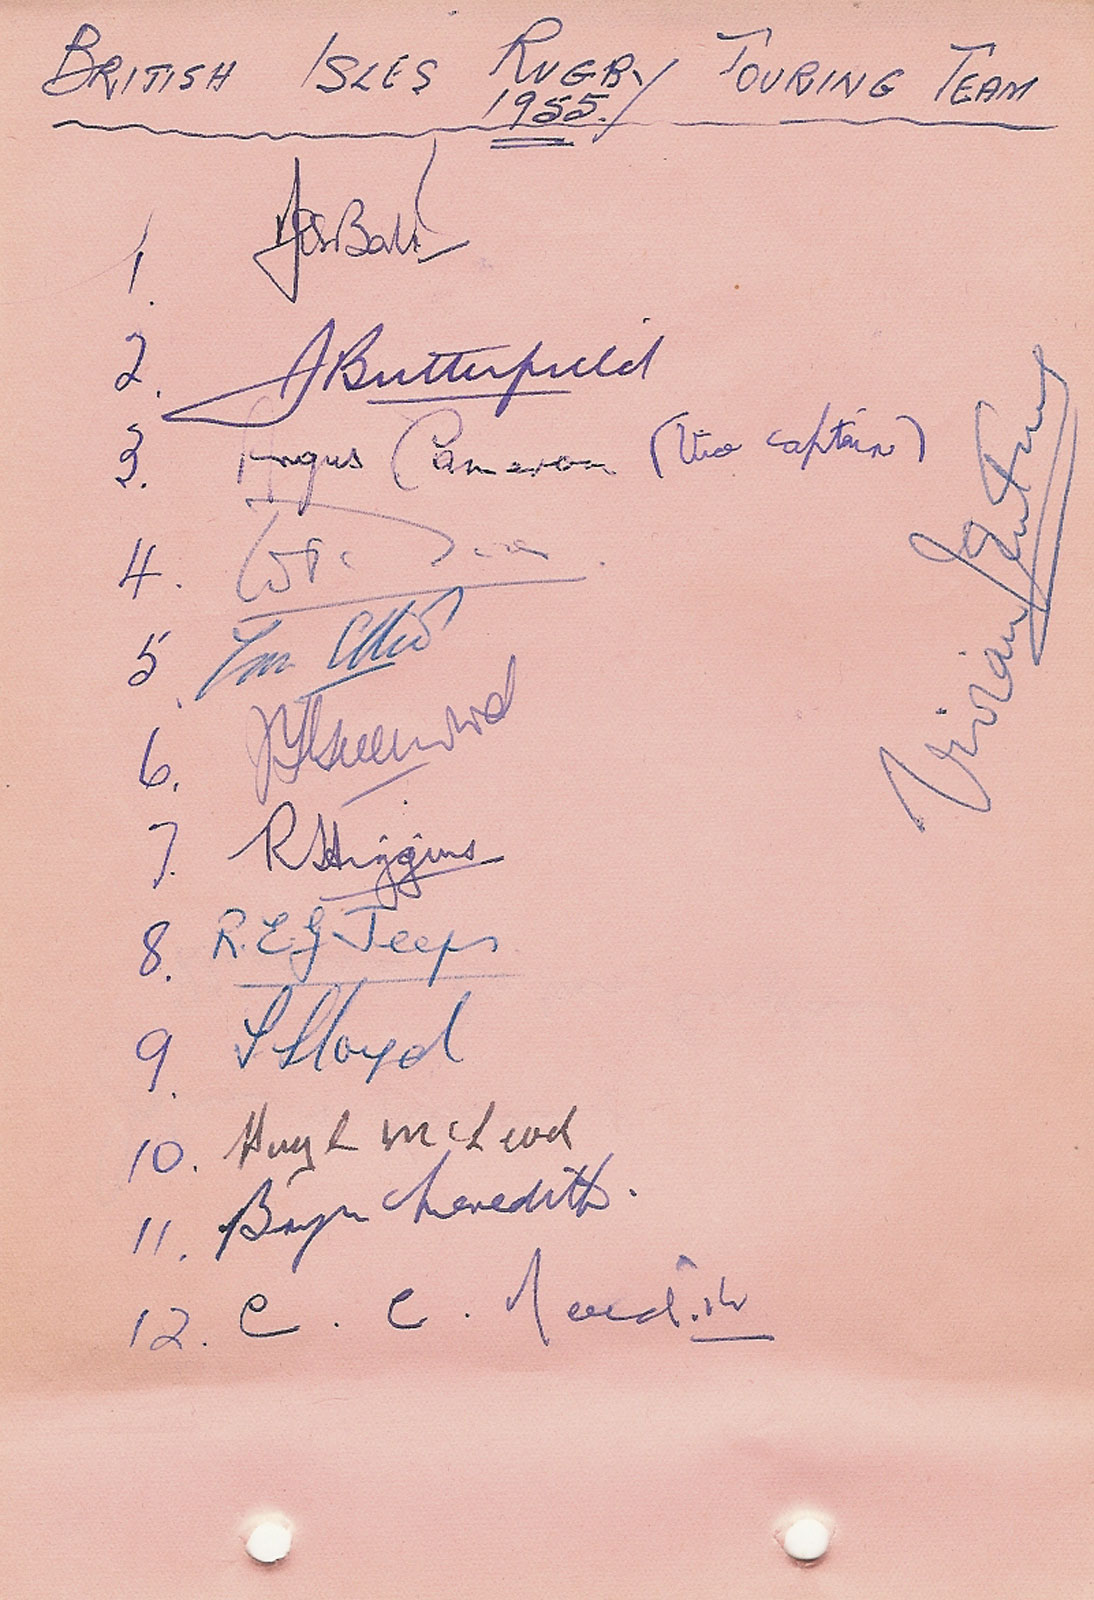 BRITISH ISLES RUGBY TOURING TEAM
1955.
1.
2. J Butterfield
3. Angus Cameron (Vice Captain)
4.
5. Tom Elliot
6. Greenwood
7. R Higgins
8. R.E.G Jeeps
9. T Lloyd
10. Hugh McLeod
11. Bryn Meredith.
12. C. C. Meredith
Vivian Jenkins